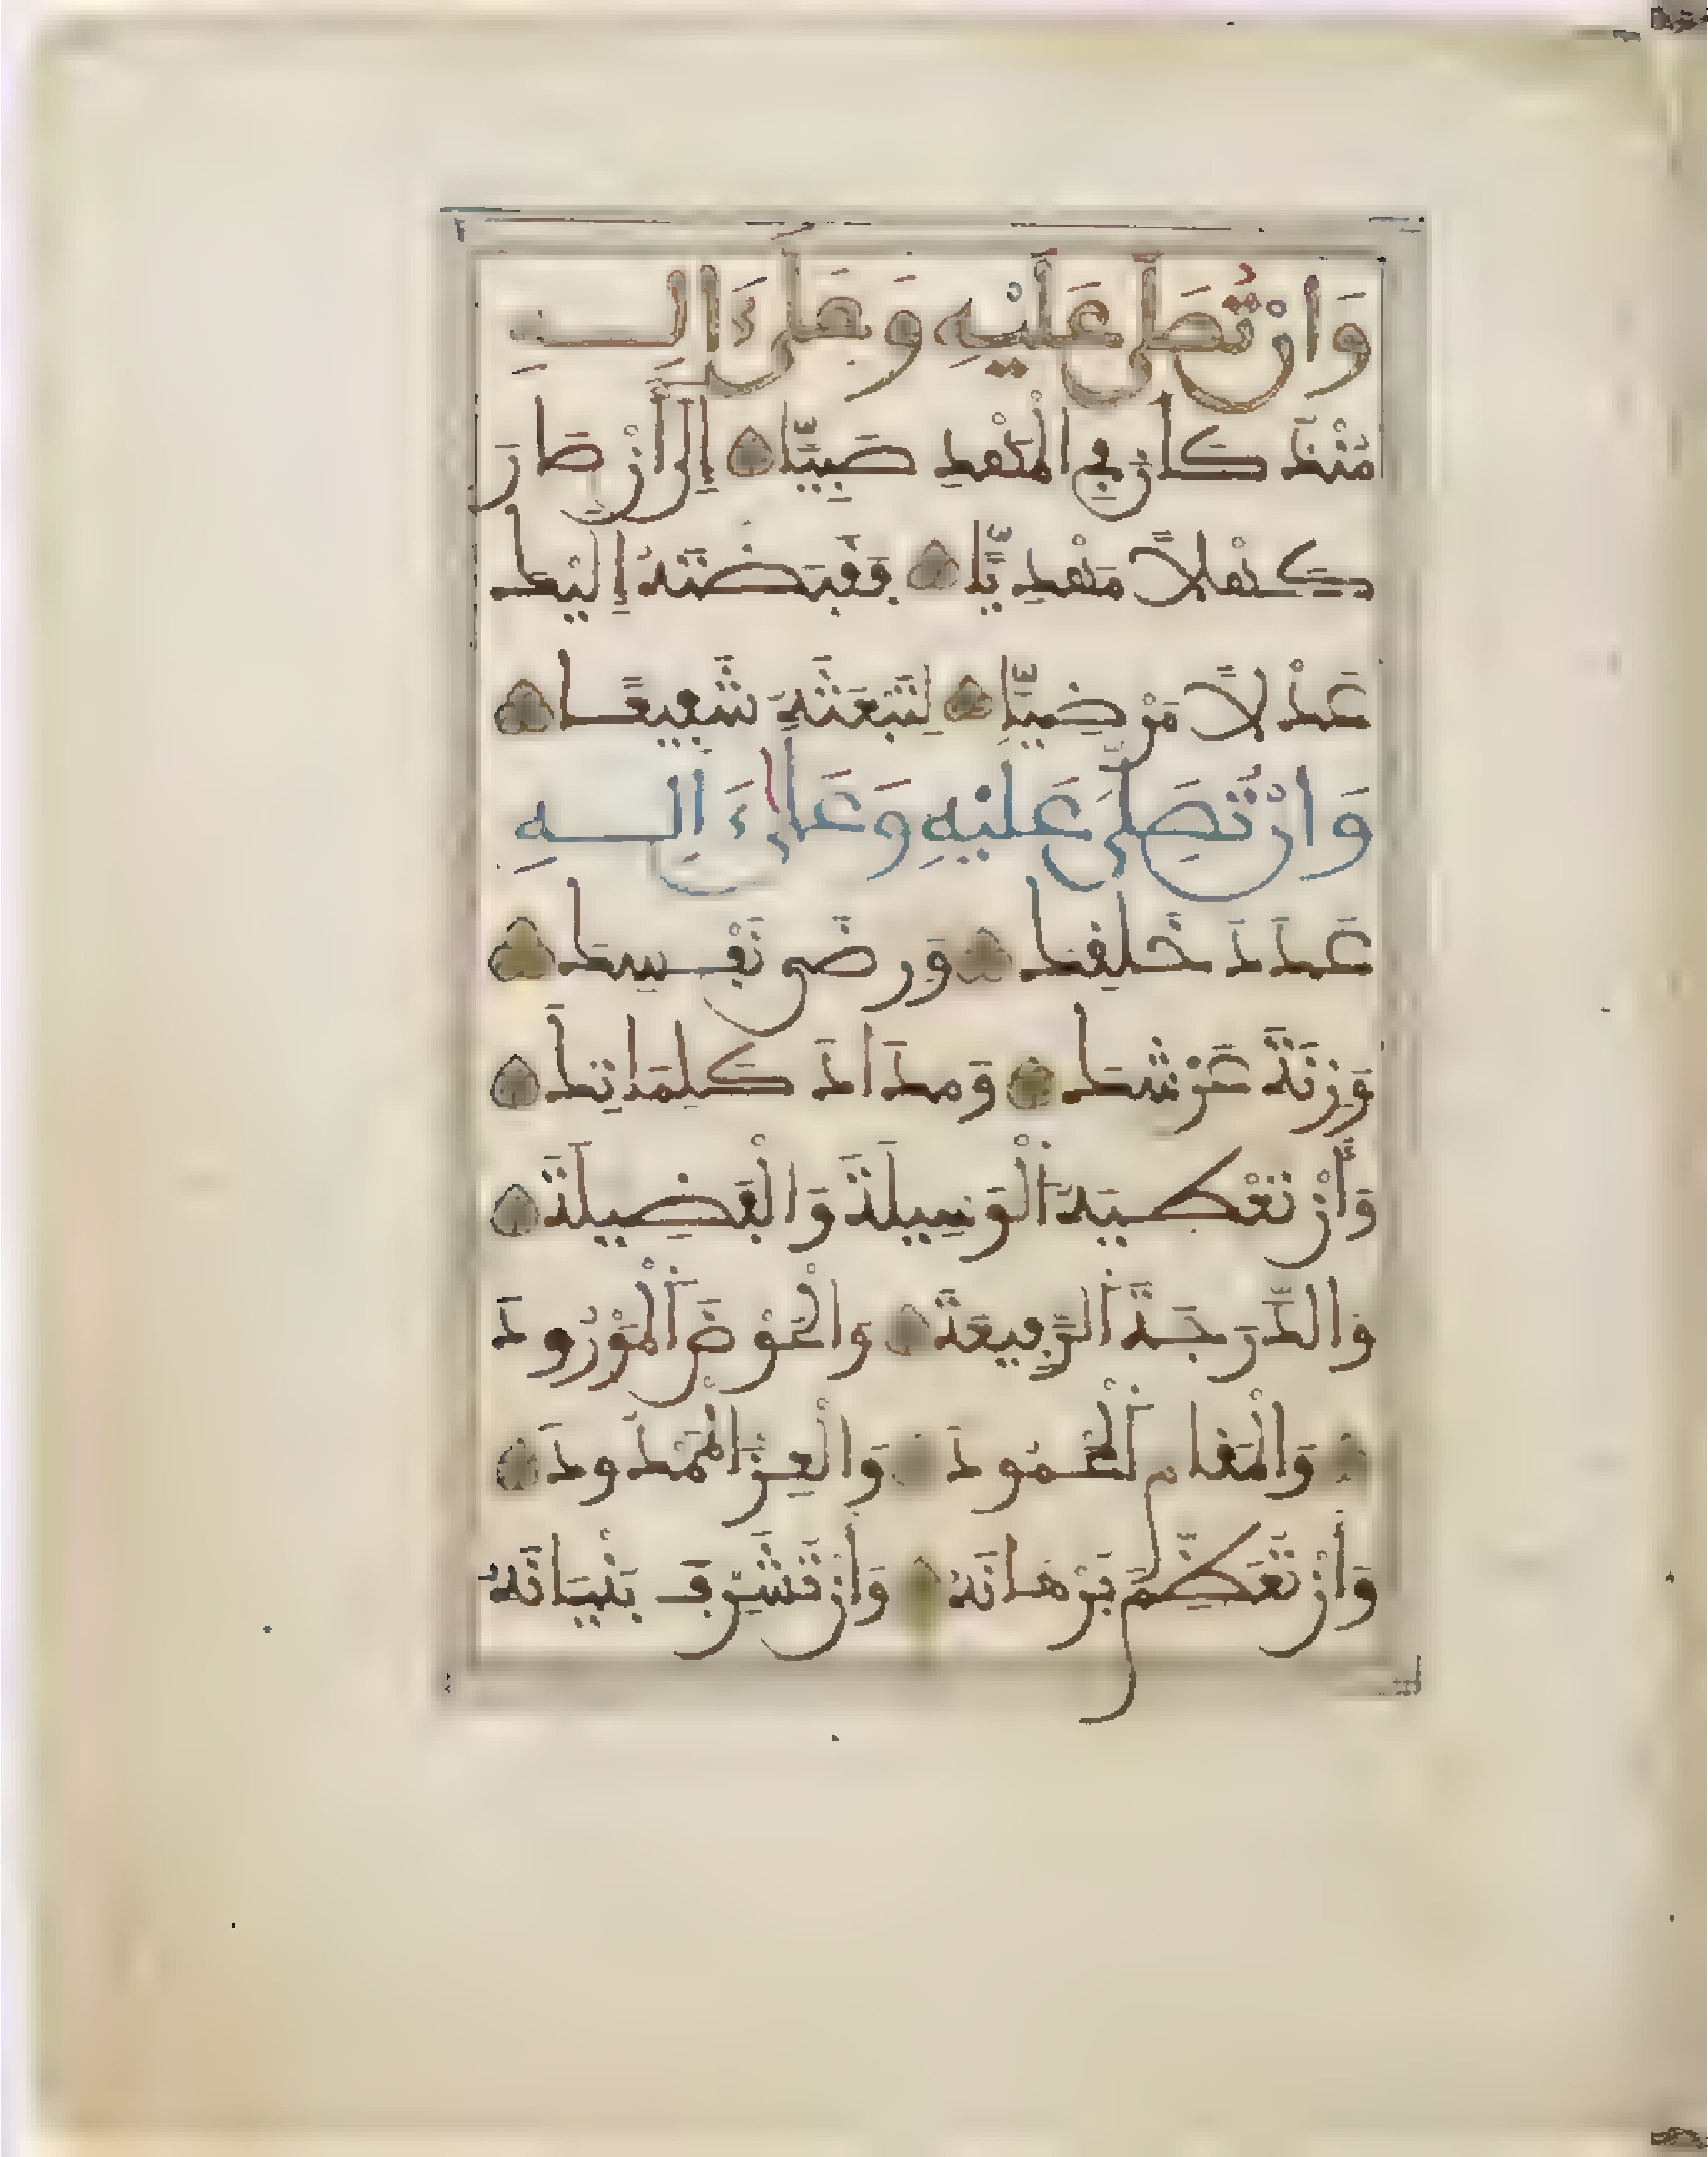 وَأَنْ تُصَلِّيَ عَلَيْهِ وَعَلَىٰ ءَالِهِ
مُنْذُ كَانَ فِي الْمَهْدِ صَبِيًّا إِلَىٰ أَنْ صَارَ
كَهْلًا مَهْدِيًّا فَقَبَضْتَهُ إِلَيْكَ
عَدْلًا مَرْضِيًّا لِتَبْعَثَهُ شَفِيعًا
وَأَنْ تُصَلِّيَ عَلَيْهِ وَعَلَىٰ ءَالِهِ
عَدَدَ خَلْقِكَ وَرِضَى نَفْسِكَ
وَزِنَةَ عَرْشِكَ وَمِدَادَ كَلِمَاتِكَ
وَأَنْ تُعْطِيَهُ الْوَسِيلَةَ وَالْفَضِيلَةَ
وَالدَّرَجَةَ الرَّفِيعَةَ وَالْحَوْضَ الْمَوْرُودَ
وَالْمَقَامَ الْمَحْمُودَ وَالْعِزَّ الْمَمْدُودَ
وَأَنْ تُعَظِّمَ بُرْهَانَهُ وَأَنْ تُشَرِّفَ بُنْيَانَهُ